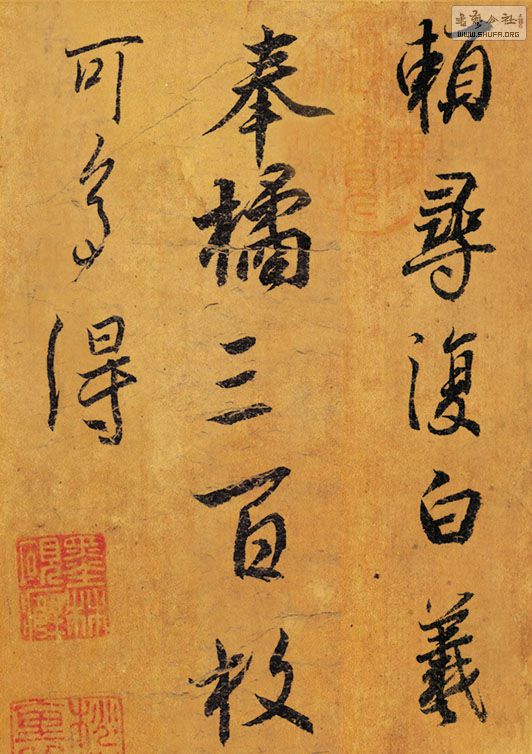 賴尋復白羲
奉橘三百枚
可多得
WWW.SHUFA.ORG